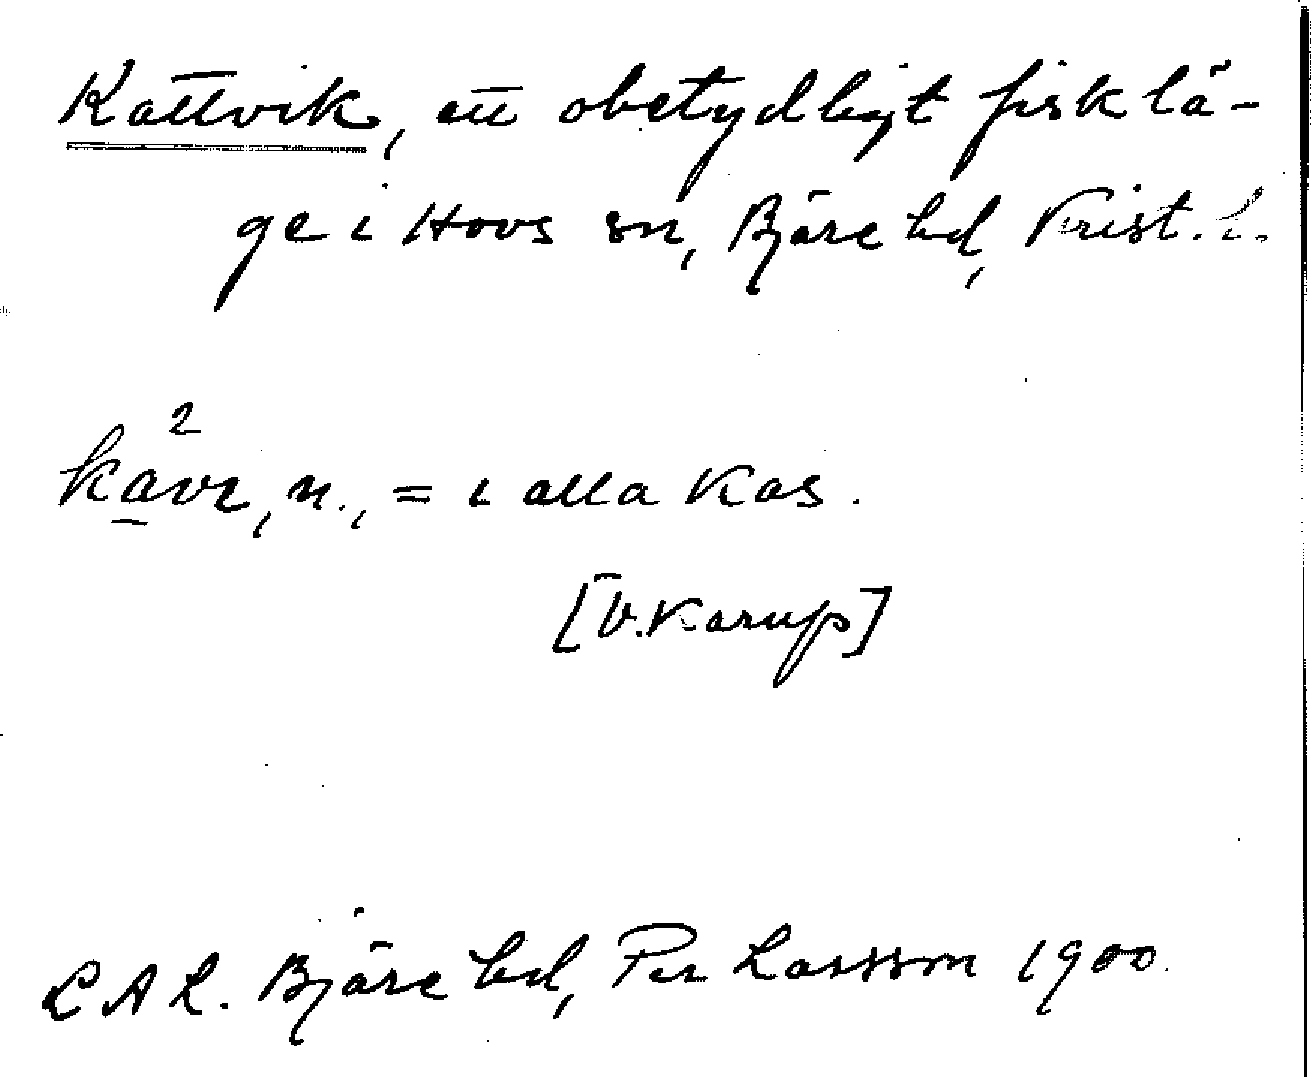 Kattvik, ett obetydligt fisklä-
ge i Hovs sn, Bjäre hd, Krist. l.
2
kavr, n., = i alla kas.
[V. Karup]
LAL. Bjäre hd, Per Larsson 1900.